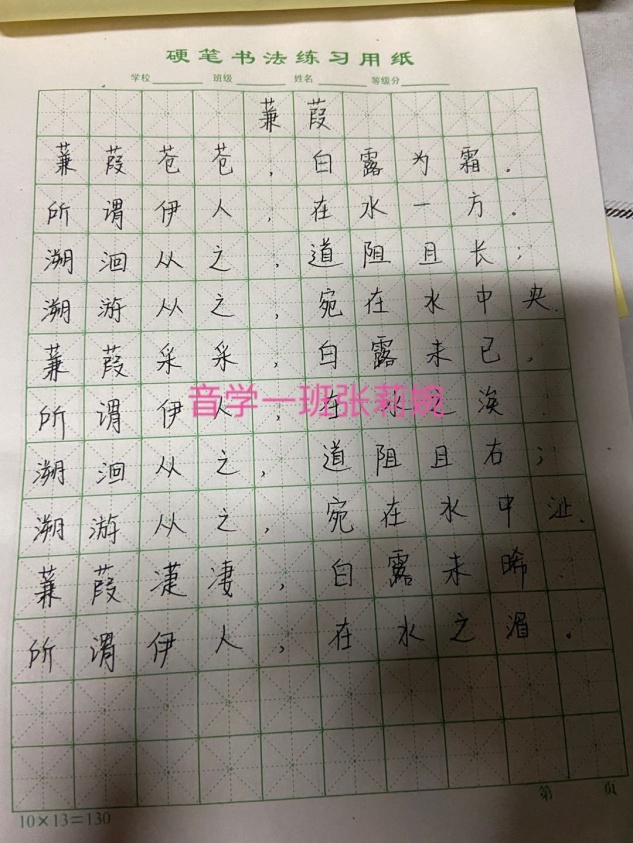 硬笔书法练习用纸
学校 班级 姓名 等级分
蒹葭
蒹葭苍苍，白露为霜。
所谓伊人，在水一方。
溯洄从之，道阻且长；
溯游从之，宛在水中央.
蒹葭采采，白露未已，
所谓伊人，在水之涘
音学一班张莉婉
溯洄从之，道阻且右；
溯游从之，宛在水中沚.
蒹葭萋凄，白露未晞.
所谓伊人，在水之湄。
第 页
10×13=130